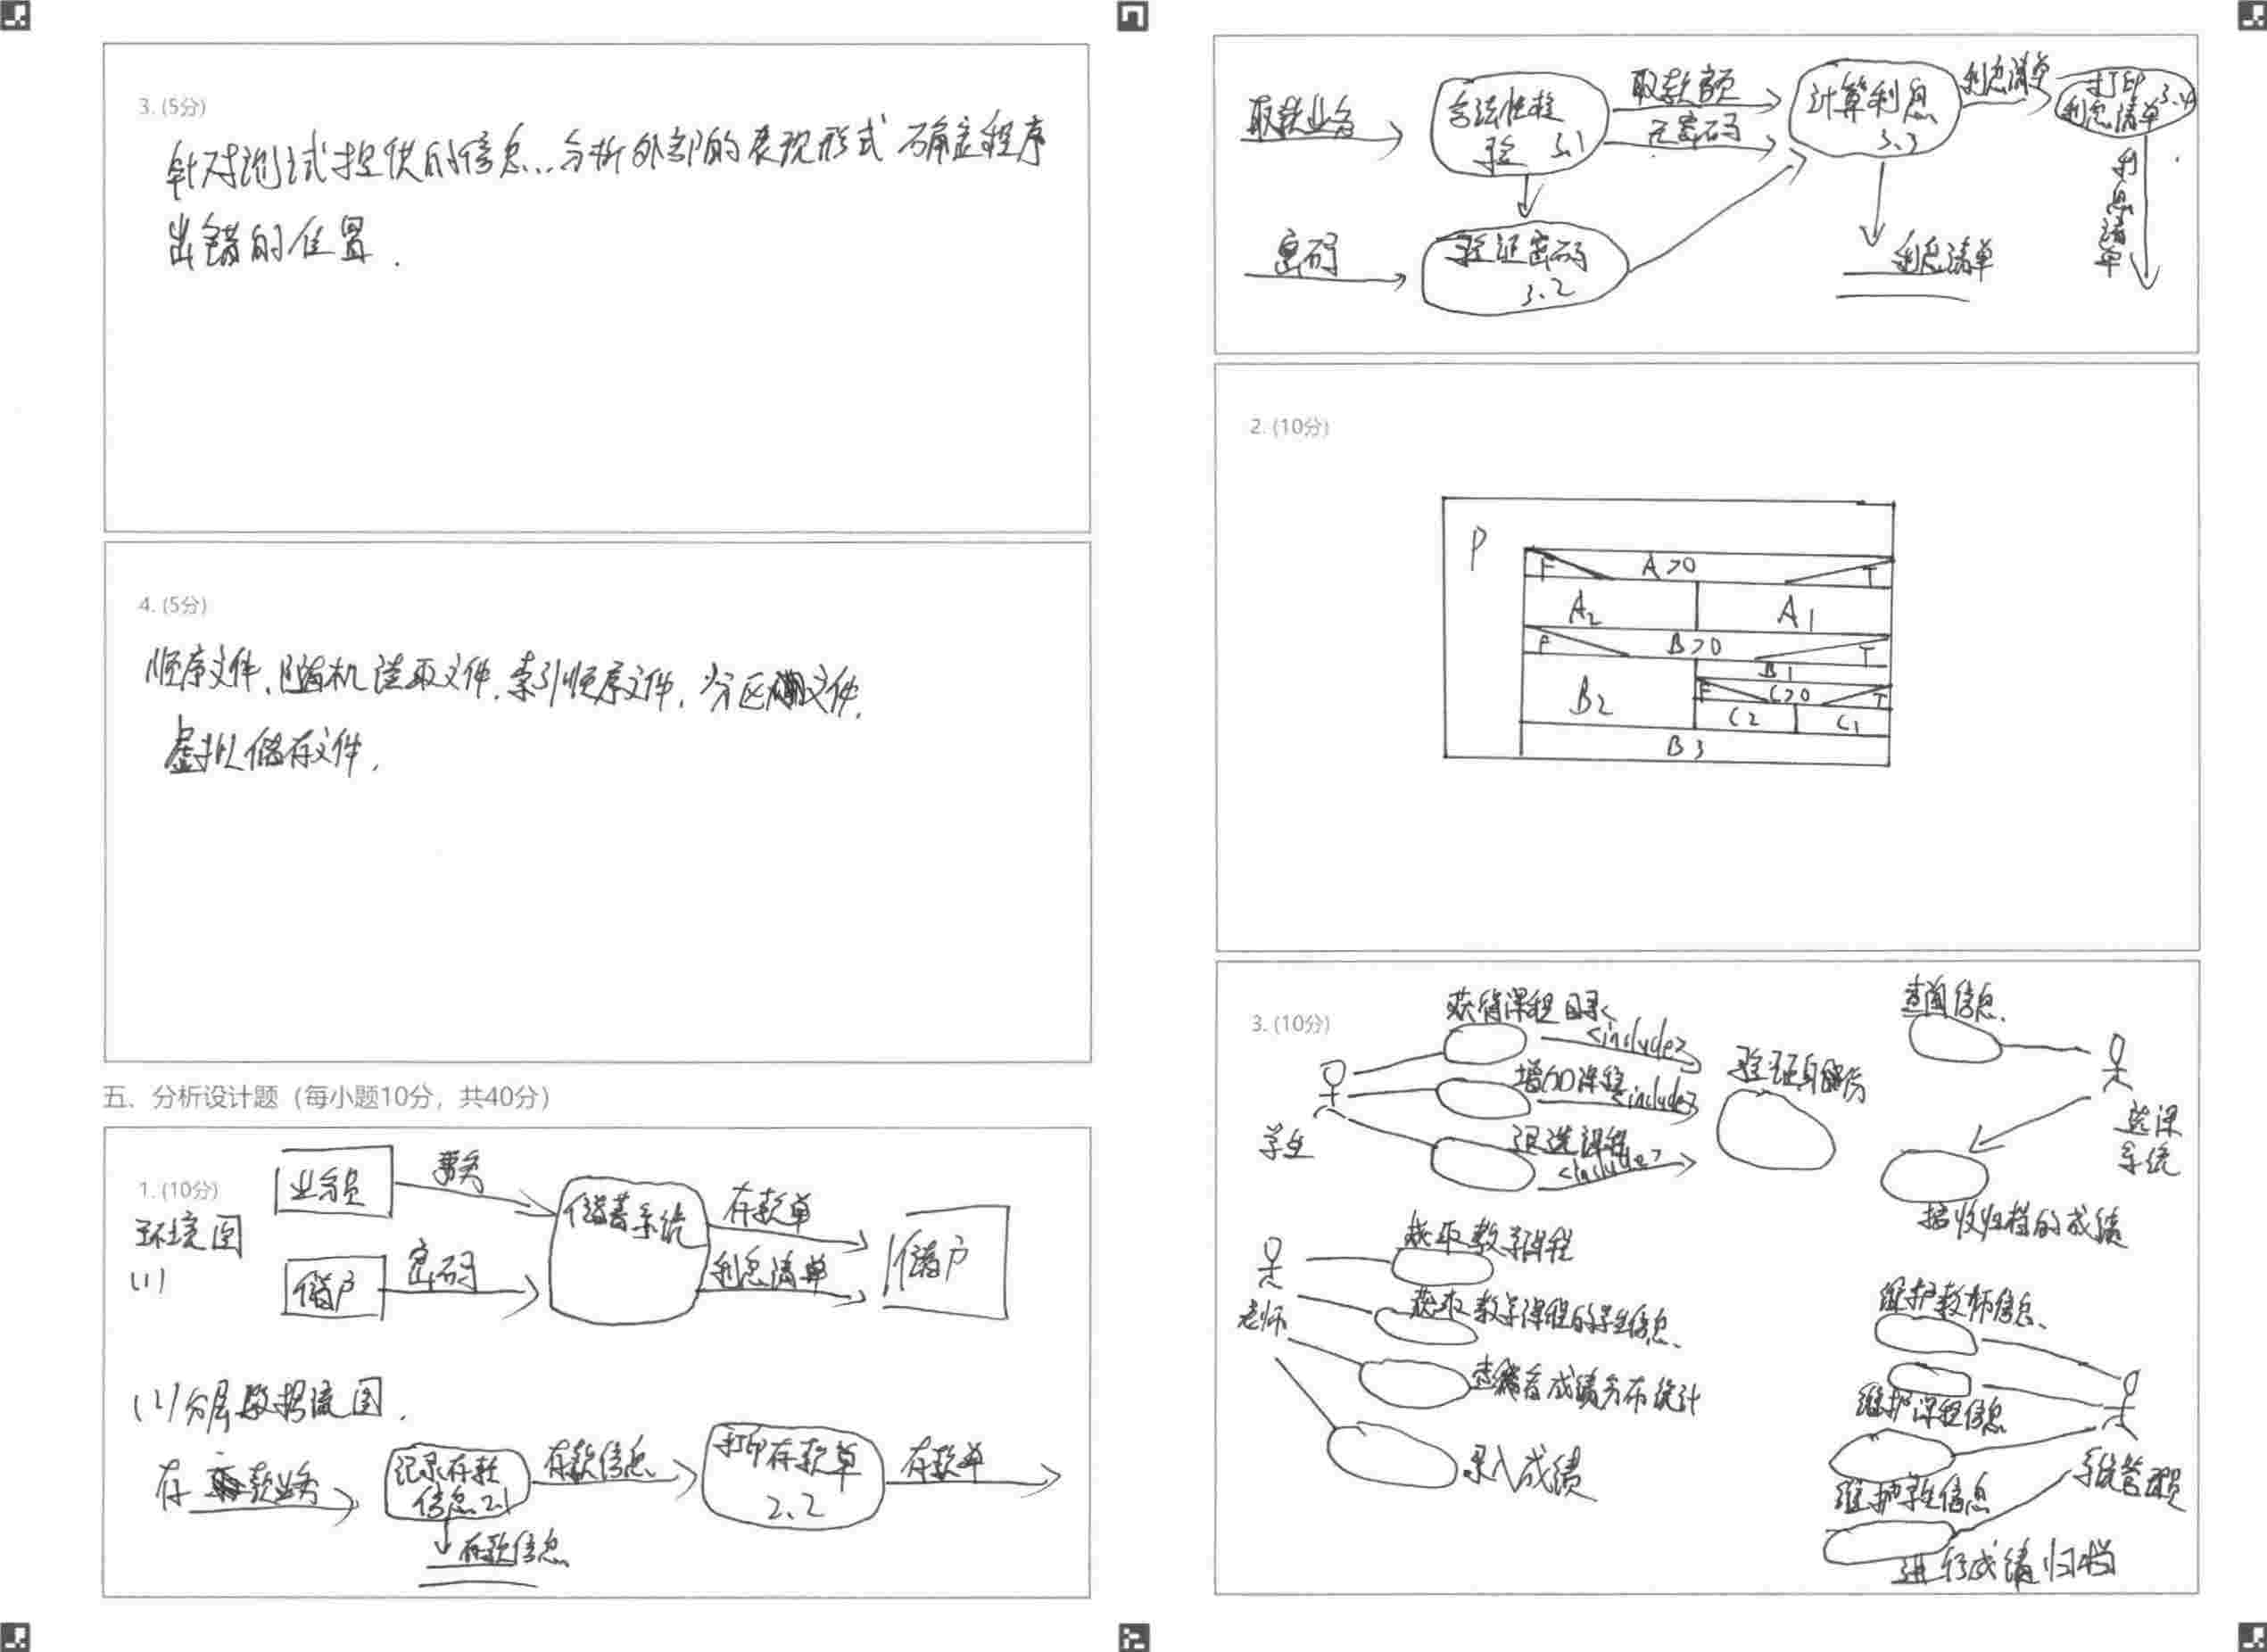 3. (5分)
针对测试提供的信息..分析外部的表现形式 确定程序
出错的位置.
4. (5分)
顺序文件、随机读取文件、索引顺序文件、分区文件、
虚拟储存文件.
五、分析设计题（每小题10分，共40分）
1. (10分)
环境图
(1)
业务员
事务
储蓄系统
存款单
储户
密码
利息清单
储户
(2)分层数据流图.
存款业务
记录存款
信息2.1
存款信息
打印存款单
2.2
存款单
存款信息
取款业务
合法性检
验 3.1
取款额
无密码
计算利息
3.3
利息清单
打印
利息清单3.4
密码
验证密码
3.2
利息清单
利息清单
2. (10分)
P
F A>0 T
A2 A1
F B>0 T
B1
B2
F C>0 T
C2 C1
B3
3. (10分)
获得课程目录
<include>
增加课程
<include>
退选课程
<include>
学生
验证身份
查询信息.
选课
系统
接收归档的成绩
获取教学课程
获取教学课程的学生信息、
老师
查看成绩分布统计
录入成绩
维护教师信息、
维护课程信息
维护学生信息
系统管理员
进行成绩归档